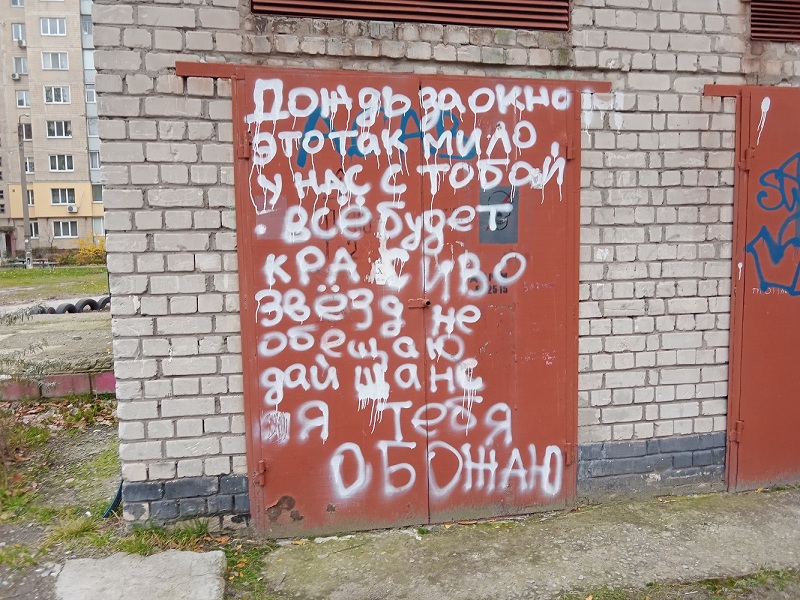 Дождь за окно
это так мило
у нас с тобой
. всё будет
красиво
звёзд не
обещаю
дай шанс
я тебя
обожаю